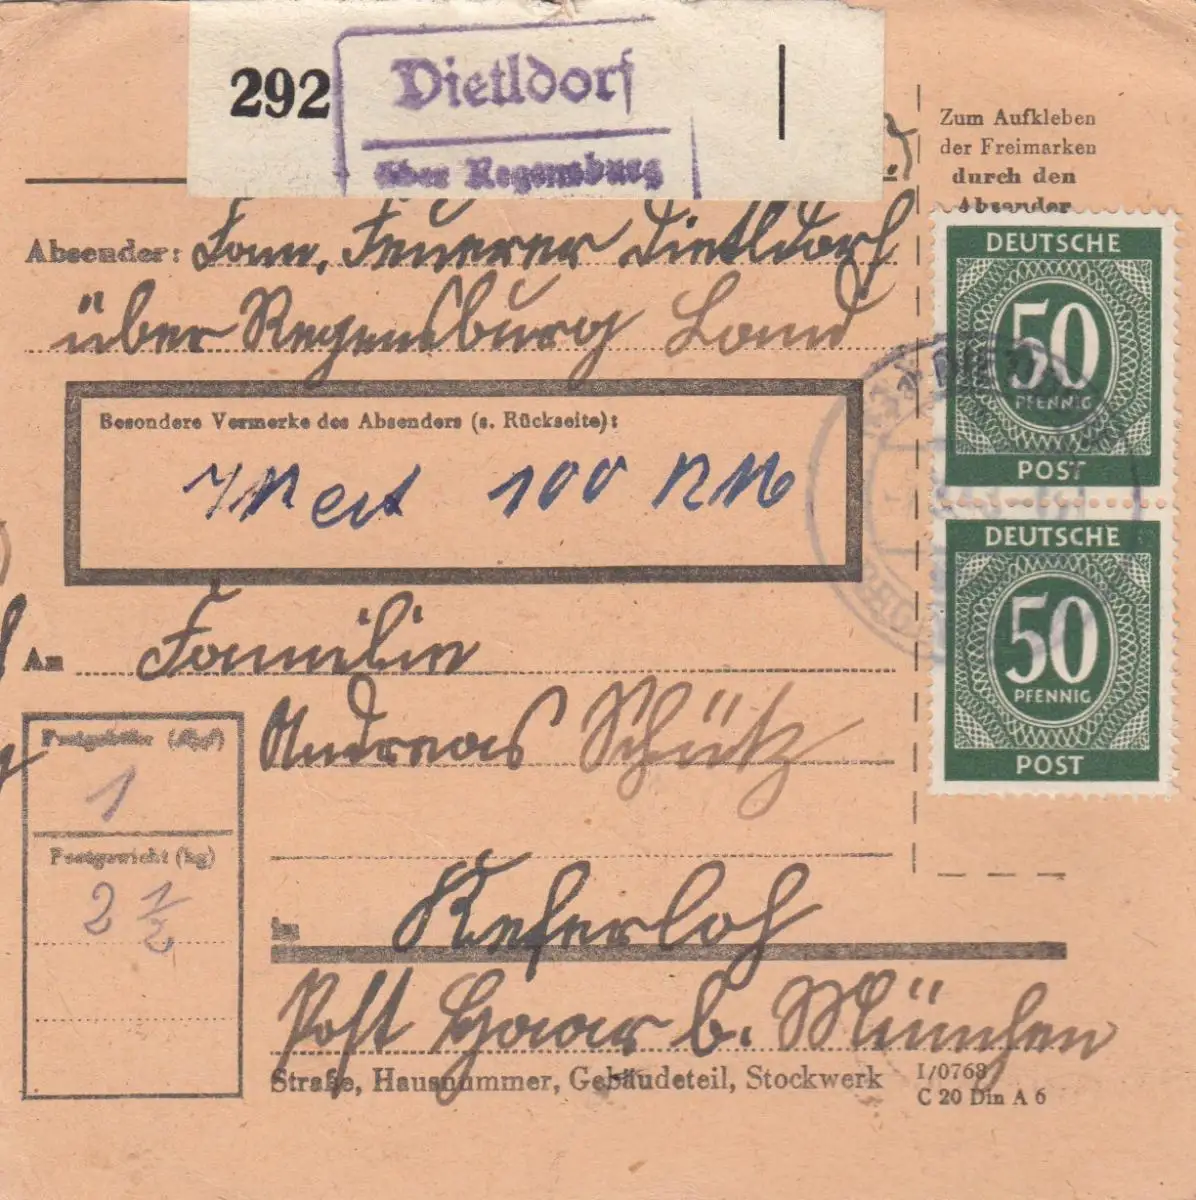 292
Dietldorf
über Regensburg
Zum Aufkleben
der Freimarken
durch den
Absender
Absender: Feuerer Dietldorf
über Regensburg Land
Besondere Vermerke des Absenders (s. Rückseite):
Wert 100 RM
DEUTSCHE
50
PFENNIG
POST
DEUTSCHE
50
PFENNIG
POST
An Familie
Andreas Schütz
Postgebühr (Rpf)
1
Postgewicht (kg)
2 1/2
in Keferloh
Post Haar b. München
Straße, Hausnummer, Gebäudeteil, Stockwerk
I/0768
C 20 Din A 6